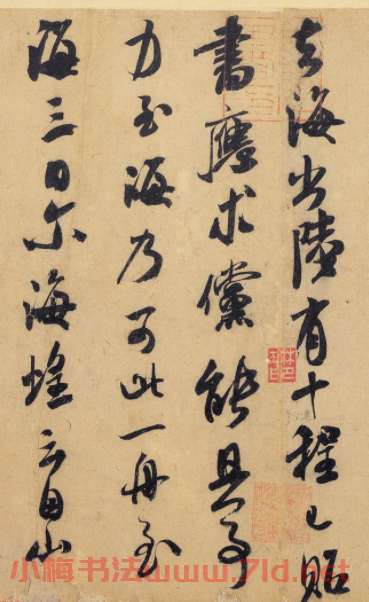 去海出陸有十程已貽
書應求儻能具事
力至海乃可此一舟至
海三日尔海蝗云自山
小梅书法www.7ld.net